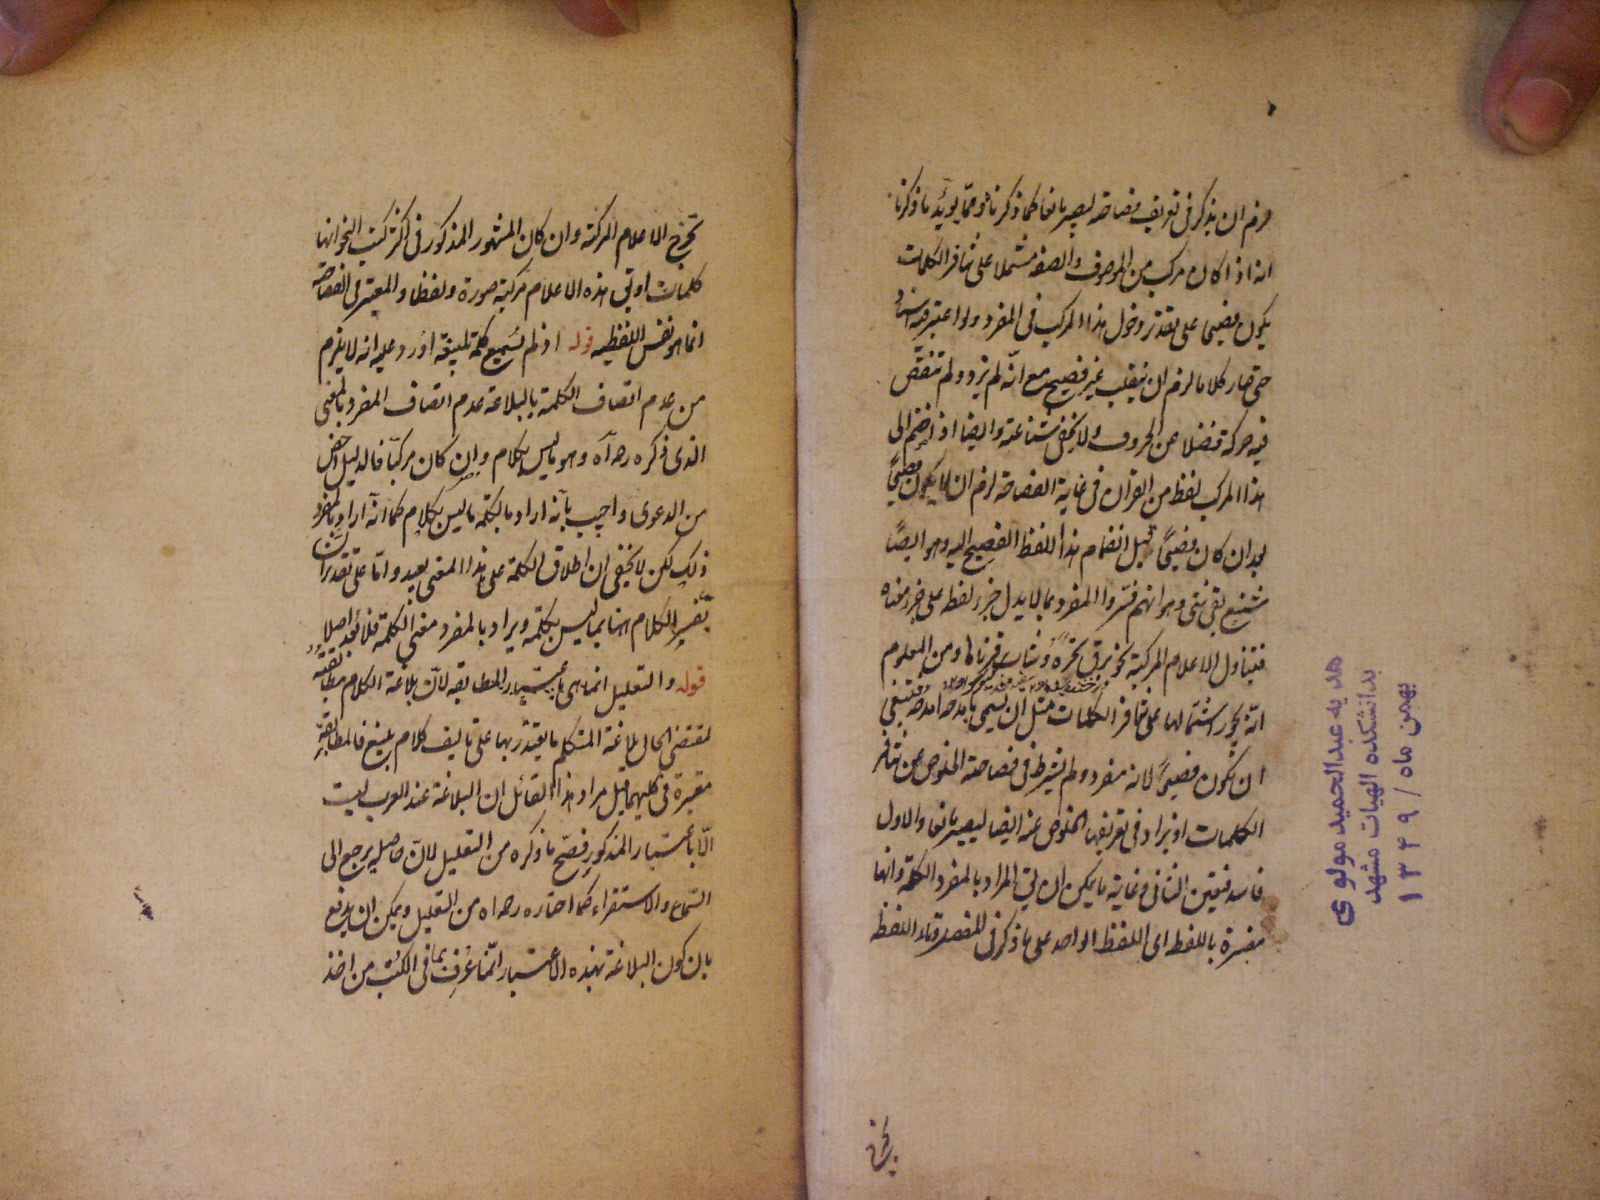 لزم ان يذكر فى تعريف فصاحته ليصير مانعا كما ذكرناه ومما يؤيد ما ذكرنا
انه اذا كان مركب من الموصوف والصفه مشتملا على تنافر الكلمات
يكون فصيحا على تقدير دخول هذا المركب فى المفرد ولو اعتبر فيه اسناد
حتى صار كلاما لزم ان ينقلب غير فصيح مع انّه لم يزد ولم تنقص
فيه حركة فضلا عن الحروف ولا يخفى شناعته وايضا اذا انضم الى
هذا المركب لفظ من القرآن فى غاية الفصاحة لزم ان لا يكون فصيحًا
بعد ان كان فصيحًا قبل انضمام هذا اللفظ الفصيح اليه وهو ايضًا
شنيع بقى شئ وهو انهم فسّروا المفرد بما لا يدل جزء لفظه على جزء معناه
فيتناول الاعلام المركبة نحو برق نحره وشاب قرناها ومن المعلوم
انّه يجوز اشتمالها على تنافر الكلمات مثل ان يسمى بامدحه امدحه فينبغى
ان تكون فصيحًا لانه مفرد ولم يشترط فى فصاحته الخلوص عن تنافر
الكلمات او يزاد فى تعريفها الخلوص عنه ايضا ليصير مانعا والاول
فاسد فتعين الثانى وغاية ما يمكن ان يق المراد بالمفرد الكلمة وانها
مفسرة باللفظ اى اللفظ الواحد على ما ذكر فى المفصل وقيد اللفظ
يخرج
تخرج الاعلام المركبة وان كان المشهور المذكور فى اكثر كتب النحو انها
كلمات او يق هذه الاعلام مركبة صورة ولفظا والمعتبر فى الفصاحة
انما هو نفس اللفظية قوله اذ لم يسمع كلمة بليغة اورد عليه انه لا يلزم
من عدم اتصاف الكلمة بالبلاغة عدم اتصاف المفرد بالمعنى
الذى ذكره ره آه وهو ما ليس بكلام وان كان مركبّا فالدليل اخص
من الدعوى واجيب بأنه اراد بالكلمة ما ليس بكلام كما انه اراد بالمفرد
ذلك لكن لا يخفى ان اطلاق الكلمة على هذا المعنى بعيد وامّا على تقدير ان
يفسر الكلام ههنا بما ليس بكلمة ويراد بالمفرد معنى الكلمة فلا بعد اصلا
قوله والتعليل انما هى باعتبار المطابقه لانّ بلاغة الكلام مطابقته
لمقتضى الحال وبلاغة المتكلم ما يقتدر بها على تاليف كلام بليغ فالمطابقة
معتبرة فى كليهما قيل مراد هذا القائل ان البلاغة عند العرب ليست
الّا باعتبار المذكور فصحّ ما ذكره من التعليل لانّ حاصله يرجع الى
السّماع والاستقراء كما اختاره ره اه من التعليل ويمكن ان يدفع
بان كون البلاغة بهذه الاعتبار انّما عُرف بما فى الكتب من اخذ
هديه عبدالحميد مولوى
بدانشكده الهيات مشهد
بهمن ماه / ١٣٤٩